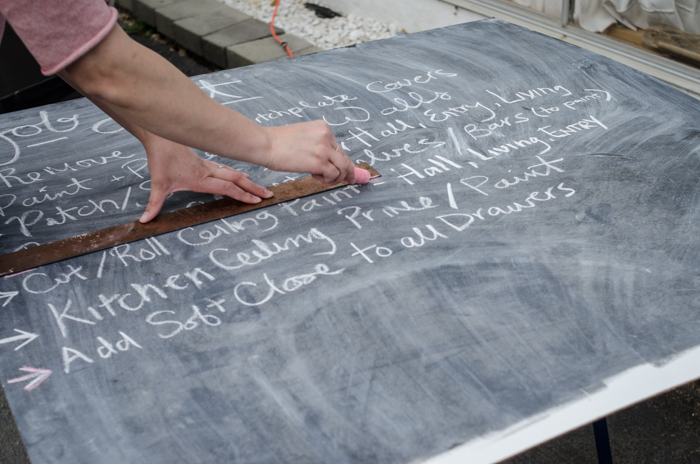 Job
Remove tchplate Covers
Paint + P Walls
Patch/ (Hall, Entry, Living
lves/Bars (to paint)
Cut/Roll Ceiling Paint - Hall, Living Entry
→ Kitchen Ceeling Prime/Paint
→ Add Soft Close to all Drawers